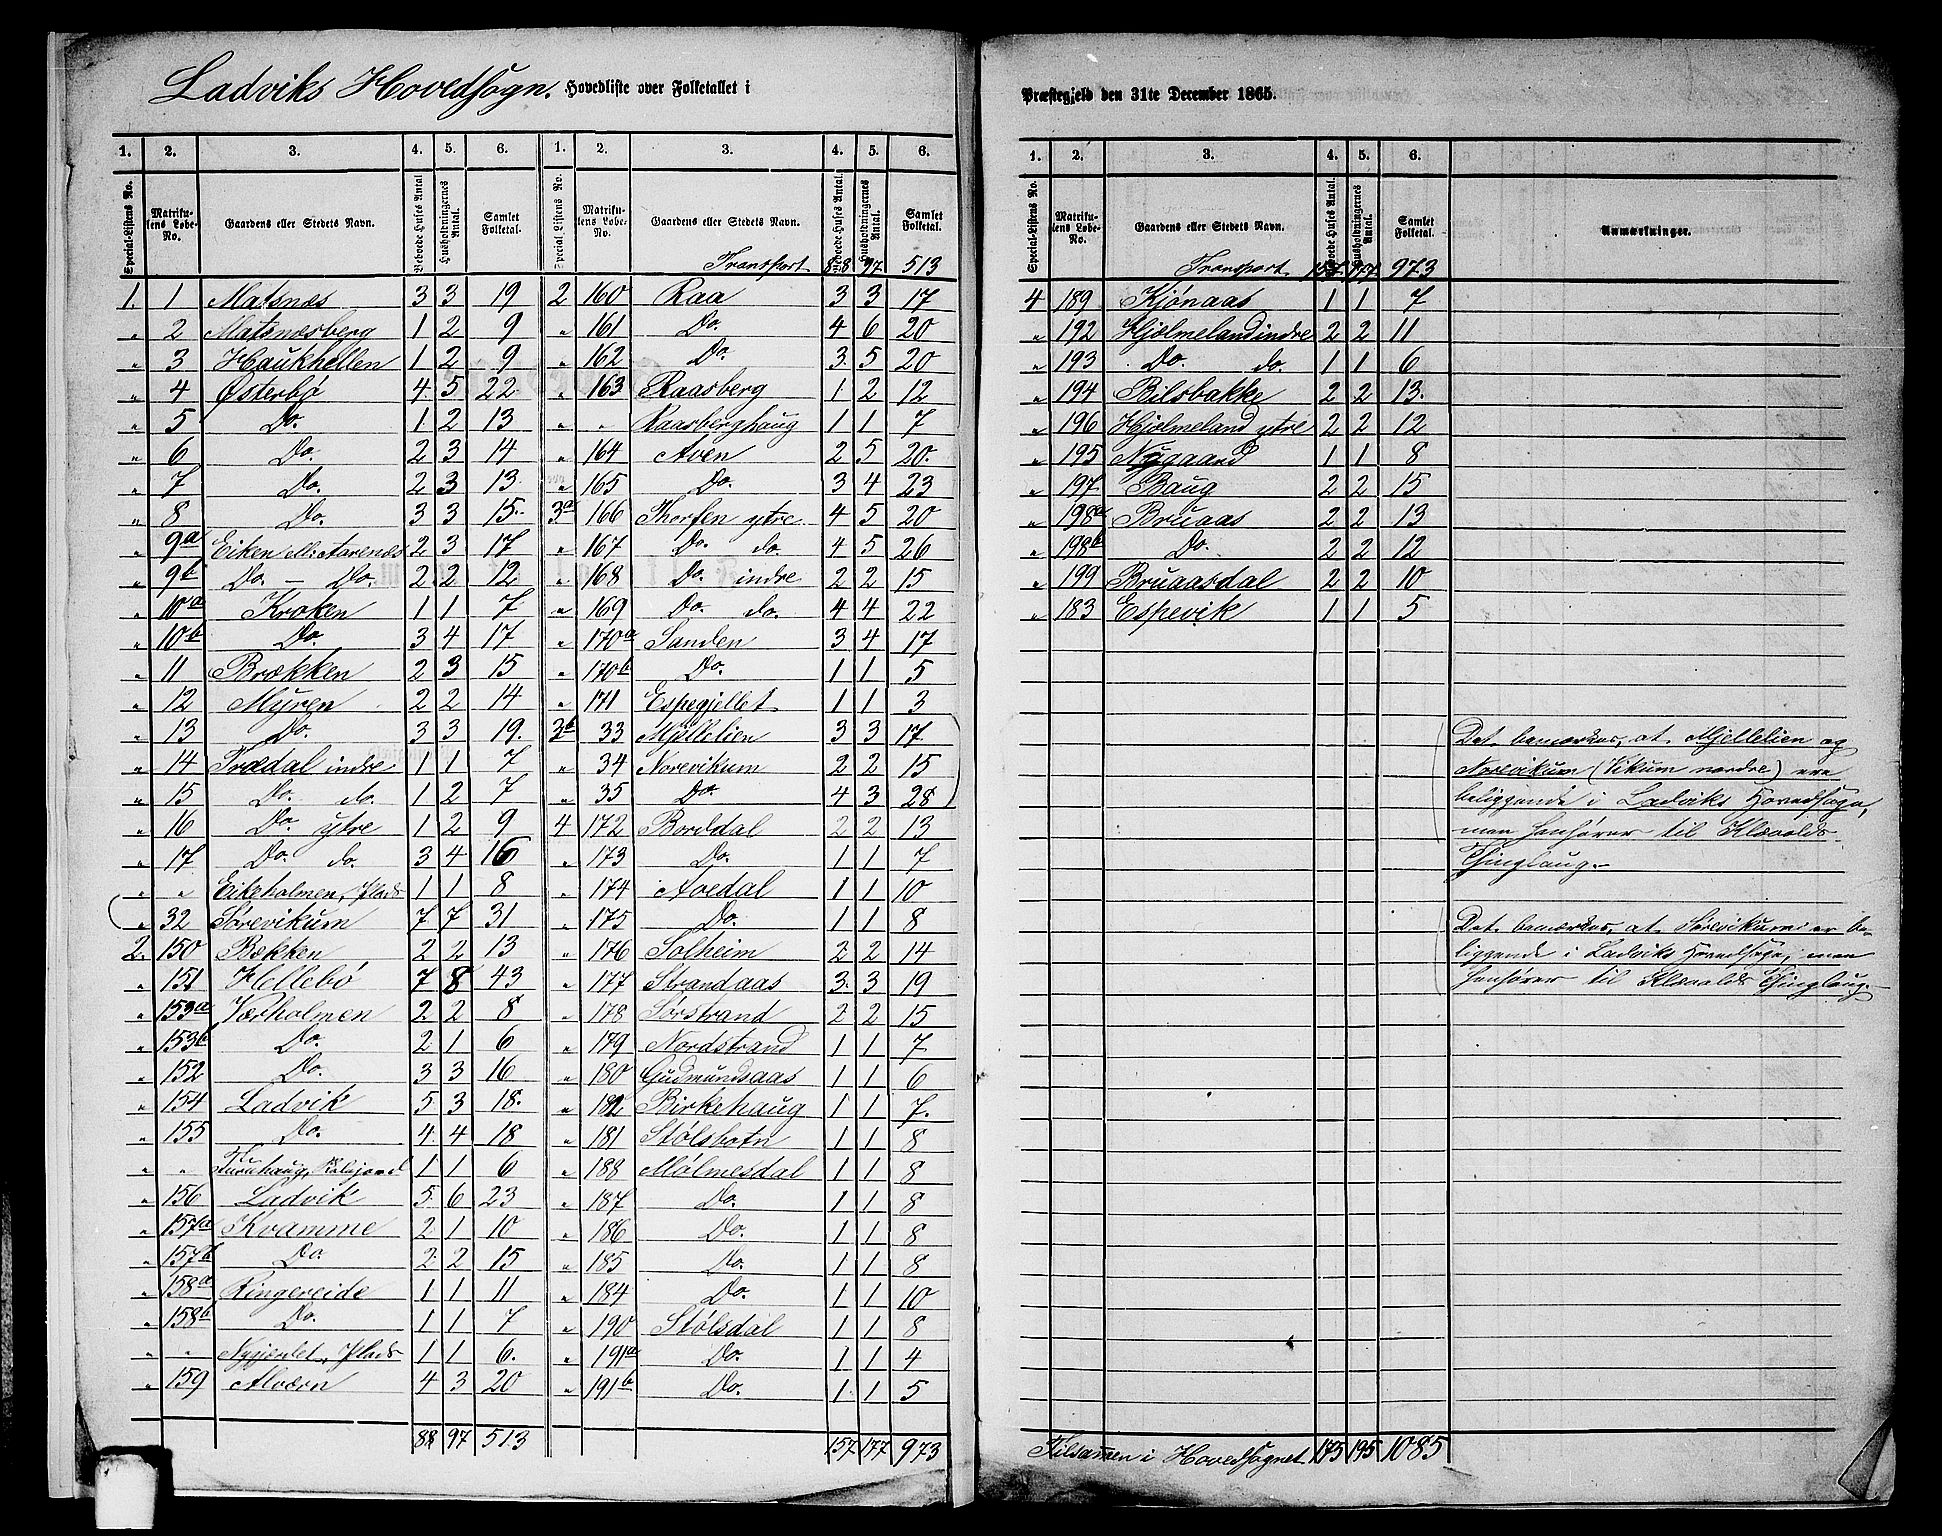 Ladviks Hovedsogn. Hovedliste over Folketallet i
1. 2. 3. 4. 5. 6. 1. 2. 3. 4. 5. 6.
Special-Listens No. Matrikulens Løbe-No. Gaardens eller Stedets Navn. Beboede Huses Antal Husholdningernes Antal. Samlet Folketal. Special-Listens No. Matrikulens Løbe-No. Gaardens eller Stedets Navn. Beboede Huses Antal. Husholdningernes Antal. Samlet Folketal.
Transport 88 97 513
1. 1 Matsnæs 3 3 19 2 160 Raa 3 3 17
" 2 Matsnæsberg 1 2 9 " 161 Do. 4 6 20
" 3 Haukhellen 1 2 9 " 162 Do. 3 5 20
" 4 Østerbø 4 5 22 " 163 Raasberg 1 2 12
" 5 Do. 1 2 13 " " Raasberghaug 1 1 7
" 6 Do. 2 3 14 " 164 Aven 2 5 20.
" 7 Do. 2 3 13 " 165 Do. 3 4 23
" 8 Do. 3 3 15 3a 166 Thorsen ytre 4 5 20
" 9a Eiken ell. Aarenæs 2 3 17 " 167 Do. do. 4 5 26
" 9b Do. – Do. 2 2 12 " 168 Do. indre 2 2 15
" 10a Kroken 1 1 7 " 169 Do. do. 4 4 22
" 10b Do. 3 4 17 " 170a Sanden 3 4 17
" 11 Brækken 2 3 15 " 170b Do. 1 1 5
" 12 Myren 2 2 14 " 171 Espegjellet 1 1 3
" 13 Do. 3 3 19. 3b 33 Mjellelien 3 3 17
" 14 Trædal indre 1 1 7 " 34 Norevikum 2 2 15
" 15 Do. do. 1 2 7 " 35 Do. 4 3 28
" 16 Do. ytre 1 2 9 4 172 Borddal 2 2 13
" 17 Do. do. 3 4 16 " 173 Do. 1 1 7
" " Eikeholmen, Plads 1 1 8 " 174 Avedal 1 1 10
" 32 Sørevikum 7 7 31 " 175 Do. 1 1 8
2. 150 Bækken 2 2 13 " 176 Solheim 2 2 14
" 151 Hellebø 7 8 43 " 177 Strandaas 3 3 19
" 153a Værholmen 2 2 8 " 178 Sørstrand 2 2 15
" 153b Do. 2 1 6 " 179 Nordstrand 1 1 7
" 152 Do. 3 3 16 " 180 Gudmundsaas 1 1 6
" 154 Ladvik 5 3 18. " 182 Birkehaug 1 1 7.
" 155 Do. 4 4 18 " 181 Stølsbotn 1 1 8
" " Furuhaug, 1 1 6 " 188 Mølmesdal 1 1 8
" 156 Ladvik 5 6 23 " 187 Do. 1 1 8
" 157a Kvamme 2 1 10 " 186 Do. 1 1 8
" 157b Do. 2 2 15 " 185 Do. 1 1 8
" 158a Ringereide 1 1 11 " 184 Do. 1 1 10
" 158b Do. 1 1 7 " 190 Stølsdal 1 1 8
" " Nygjerdet, Plads 1 1 6. " 191a Do. 1 1 4
" 159 Alværn 4 3 20 " 191b Do. 1 1 5
88 97 513 157 177 973
Præstegjeld den 31te December 1865.
1. 2. 3. 4. 5. 6.
Special-Listens No. Matrikulens Løbe-No. Gaardens eller Stedets Navn. Beboede Huses Antal. Husholdningernes Antal. Samlet Folketal. Anmærkninger.
Transport 157 177 973
4 189 Kjønaas 1 1 7
" 192 Hjælmeland indre 2 2 11
" 193 Do. do. 1 1 6
" 194 Bilsbakke 2 2 13.
" 196 Hjælmeland ytre 2 2 12
" 195 Nygaard 1 1 8
" 197 Baug 2 2 15
" 198a Bruaas 2 2 13
" 198b Do. 2 2 12
" 199 Bruaasdal 2 2 10
" 183 Espevik 1 1 5
Det bemærkes, at Mjellelien og
Norevikum (Vikum nordre) ere
beliggende i Ladviks Hovedsogn,
men henhører til Klævolds
Thinglaug.
Det bemærkes, at Sørevikum er be-
liggende i Ladviks Hovedsogn, men
henhører til Klævolds Thinglaug.
Tilsammen i Hovedsognet 175 195 1085